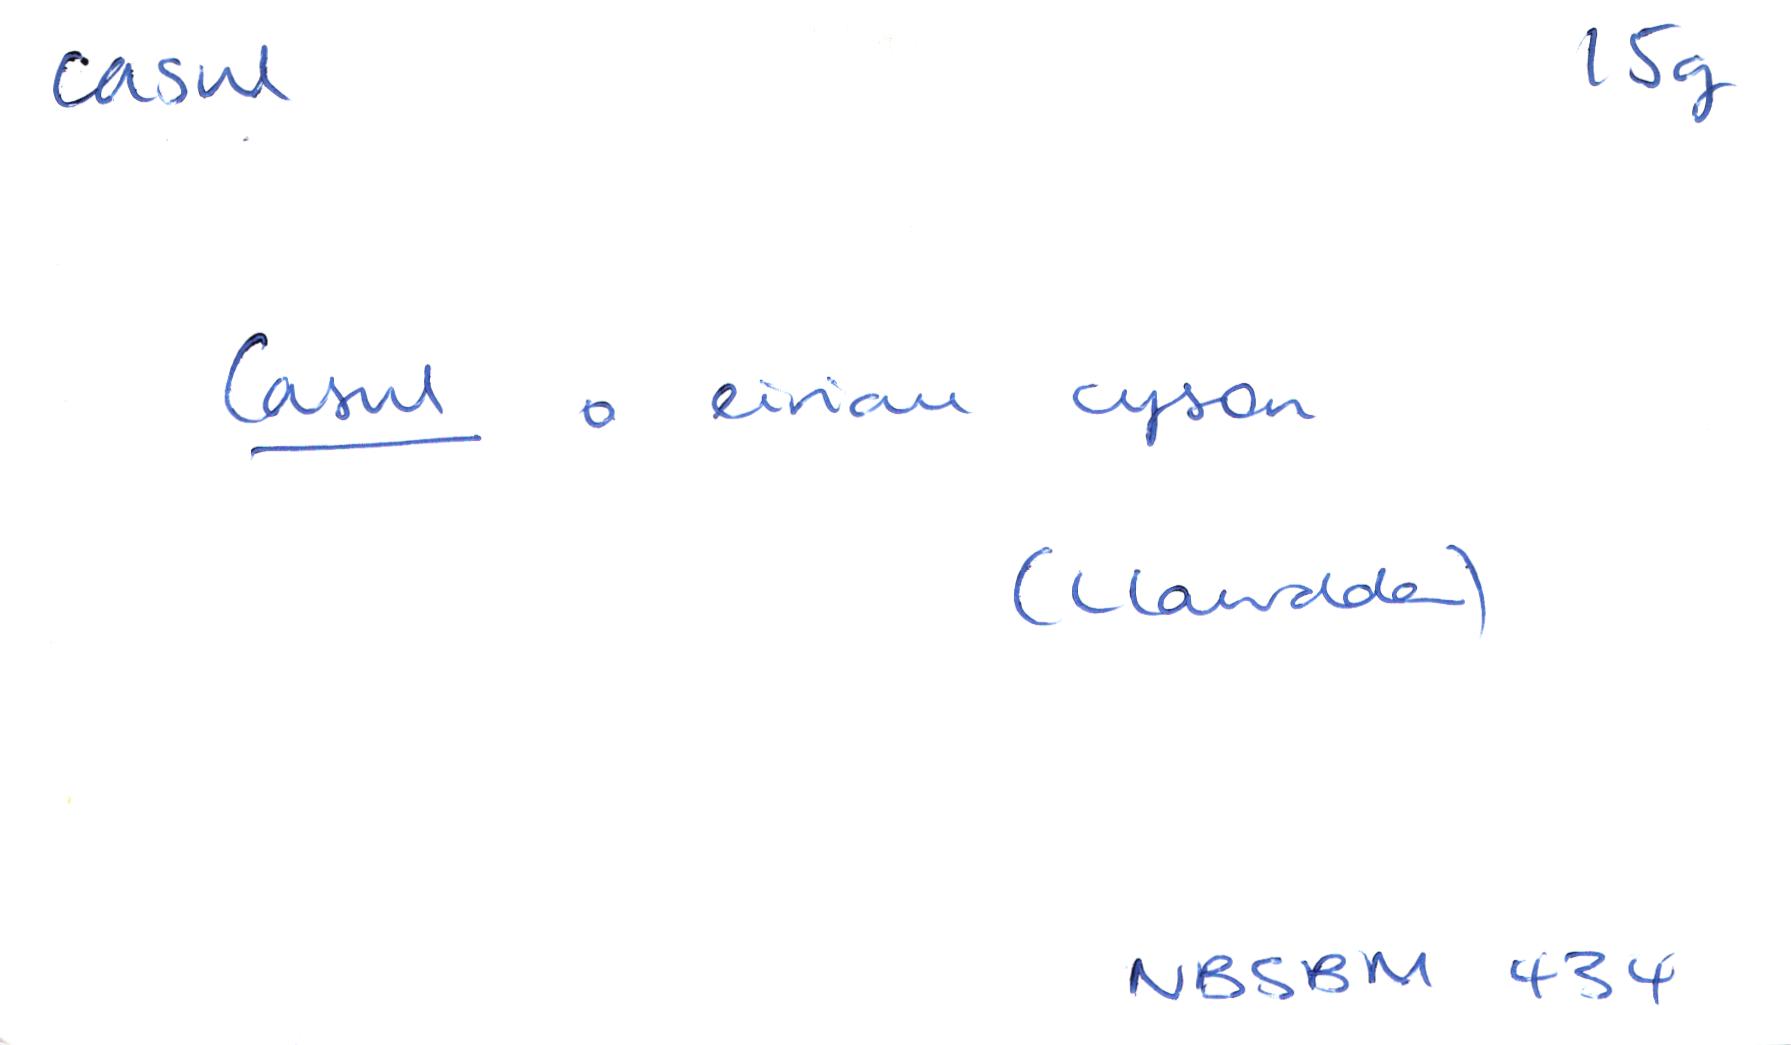 casul 15g
Casul o eiriau cyson
(Llawdden)
NBSBM 434